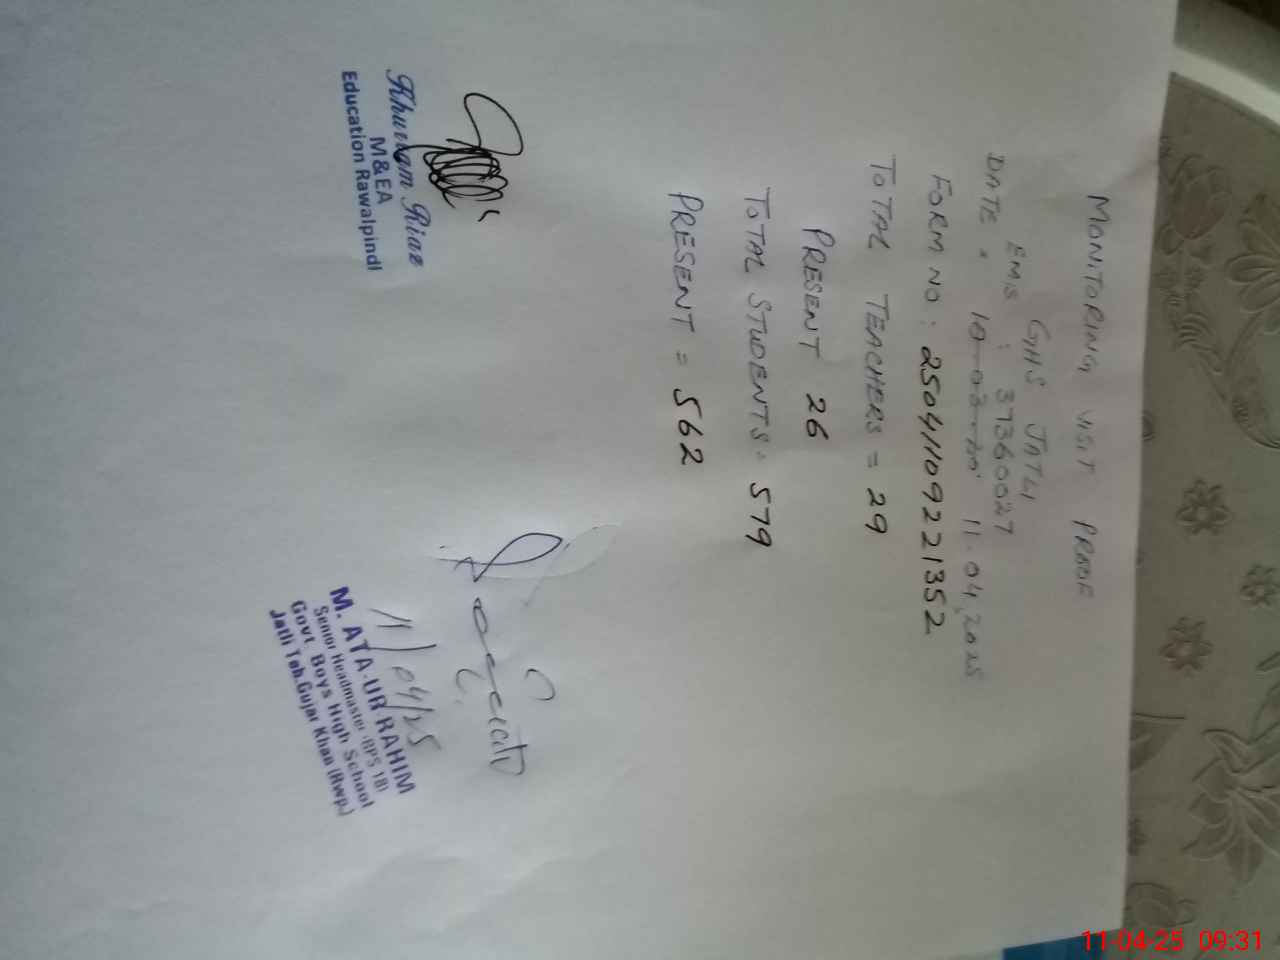 MONITORING VISIT PROOF
GHS JATLI
EMIS : 37360027
DATE : 11.04.2025
FORM NO : 25041109221352
TOTAL TEACHERS = 29
PRESENT 26
TOTAL STUDENTS = 579
PRESENT = 562
Khurram Riaz
M&EA
Education Rawalpindi
11/04/25
M. ATA-UR RAHIM
Senior Headmaster (BPS 18)
Govt. Boys High School
Jatli Teh.Gujar Khan (Rwp.)
11-04-25 09:31